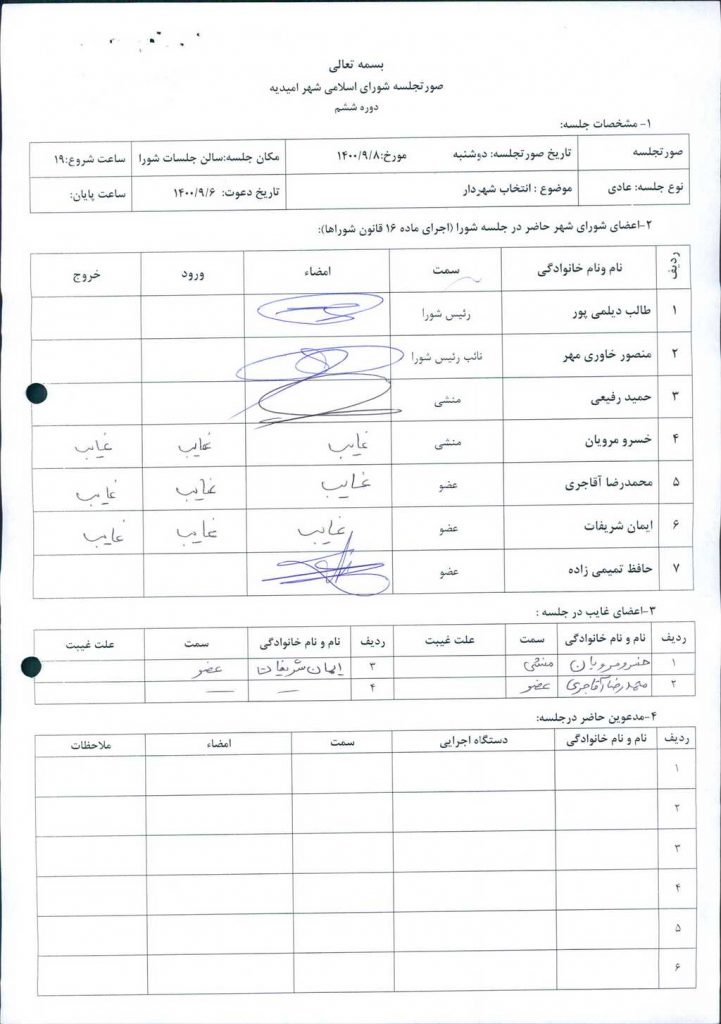 بسمه تعالی
صورتجلسه شورای اسلامی شهر امیدیه
دوره ششم
۱- مشخصات جلسه:
صورتجلسه تاریخ صورتجلسه: دوشنبه مورخ:۱۴۰۰/۹/۸ مکان جلسه:سالن جلسات شورا ساعت شروع:۱۹
نوع جلسه: عادی موضوع : انتخاب شهردار تاریخ دعوت: ۱۴۰۰/۹/۶ ساعت پایان:
۲-اعضای شورای شهر حاضر در جلسه شورا (اجرای ماده ۱۶ قانون شوراها):
ردیف نام ونام خانوادگی سمت امضاء ورود خروج
۱ طالب دیلمی پور رئیس شورا
۲ منصور خاوری مهر نائب رئیس شورا
۳ حمید رفیعی منشی
۴ خسرو مرویان منشی غایب غایب غایب
۵ محمدرضا آقاجری عضو غایب غایب غایب
۶ ایمان شریفات عضو غایب غایب غایب
۷ حافظ تمیمی زاده عضو
۳-اعضای غایب در جلسه :
ردیف نام و نام خانوادگی سمت علت غیبت ردیف نام و نام خانوادگی سمت علت غیبت
۱ خسرو مرویان منشی ۳ ایمان شریفات عضو
۲ محمدرضا آقاجری عضو ۴ — —
۴-مدعوین حاضر درجلسه:
ردیف نام و نام خانوادگی دستگاه اجرایی سمت امضاء ملاحظات
۱
۲
۳
۴
۵
۶